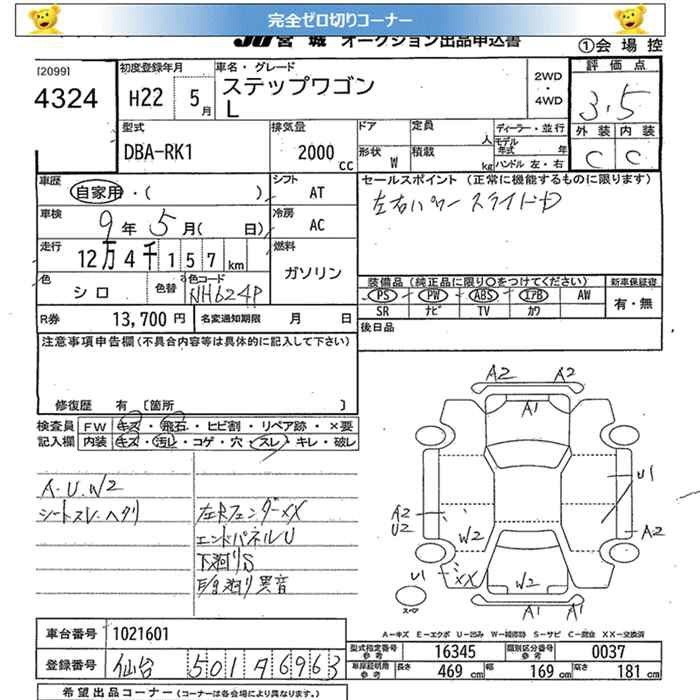 完全ゼロ切りコーナー
JU宮城 オークション出品申込書
①会場控
[2099]
4324
初度登録年月
H22 5月
車名・グレード
ステップワゴン
L
2WD
・
4WD
評価点
3.5
外装 内装
C C
型式
DBA-RK1
排気量
2000cc
ドア
定員 人
形状 W
積載 kg
ディーラー・並行
モデル年式 年
ハンドル 左・右
車歴
自家用・( )
シフト AT
車検
9年5月( 日)
冷房 AC
走行
12万4千157km
燃料
ガソリン
色
シロ
色替
色コード
NH624P
R券 13,700円
名変通知期限 月 日
セールスポイント (正常に機能するものに限ります)
左右パワースライドD
装備品 (純正品に限り○をつけてください)
新車保証書
PS PW ABS エアB AW
SR ナビ TV カワ
有・無
後日品
注意事項申告欄(不具合内容等は具体的に記入して下さい)
修復歴 有 [箇所 ]
検査員記入欄
FW キズ・飛石・ヒビ割・リペア跡・×要
内装 キズ・汚レ・コゲ・穴・スレ・キレ・破レ
A.U.W2
シートスレ・ヘタリ
左Rフェンダー××
エンドパネルU
下廻りS
異音
A2 A2
A1
U1
A2
U2
W2
A2
U1
××
W2
スペア
A1 A1
A-キズ E-エクボ U-凹み W-補修跡 S-サビ C-腐食 XX-交換済
車台番号 1021601
登録番号 仙台 501 タ 6963
型式指定番号 参考 16345
類別区分番号 参考 0037
車庫証明用 参考
長さ 469cm 幅 169cm 高さ 181cm
希望出品コーナー (コーナーは各会場により異なります。)